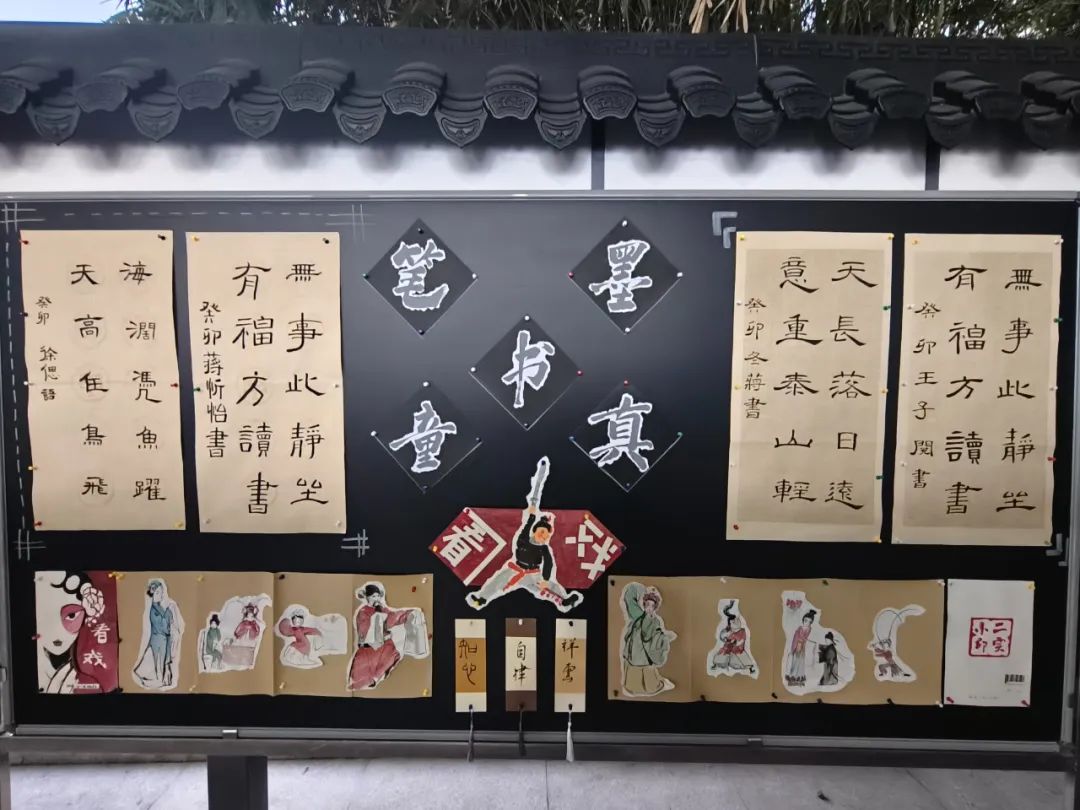 笔墨
书
童真
海濶凭魚躍
天高任鳥飛
癸卯 徐偲語
無事此靜坐
有福方讀書
癸卯蔣忻怡書
天長落日遠
意重泰山輕
癸卯冬蔣書
無事此靜坐
有福方讀書
癸卯王子閱書
看戏
看戏
自律